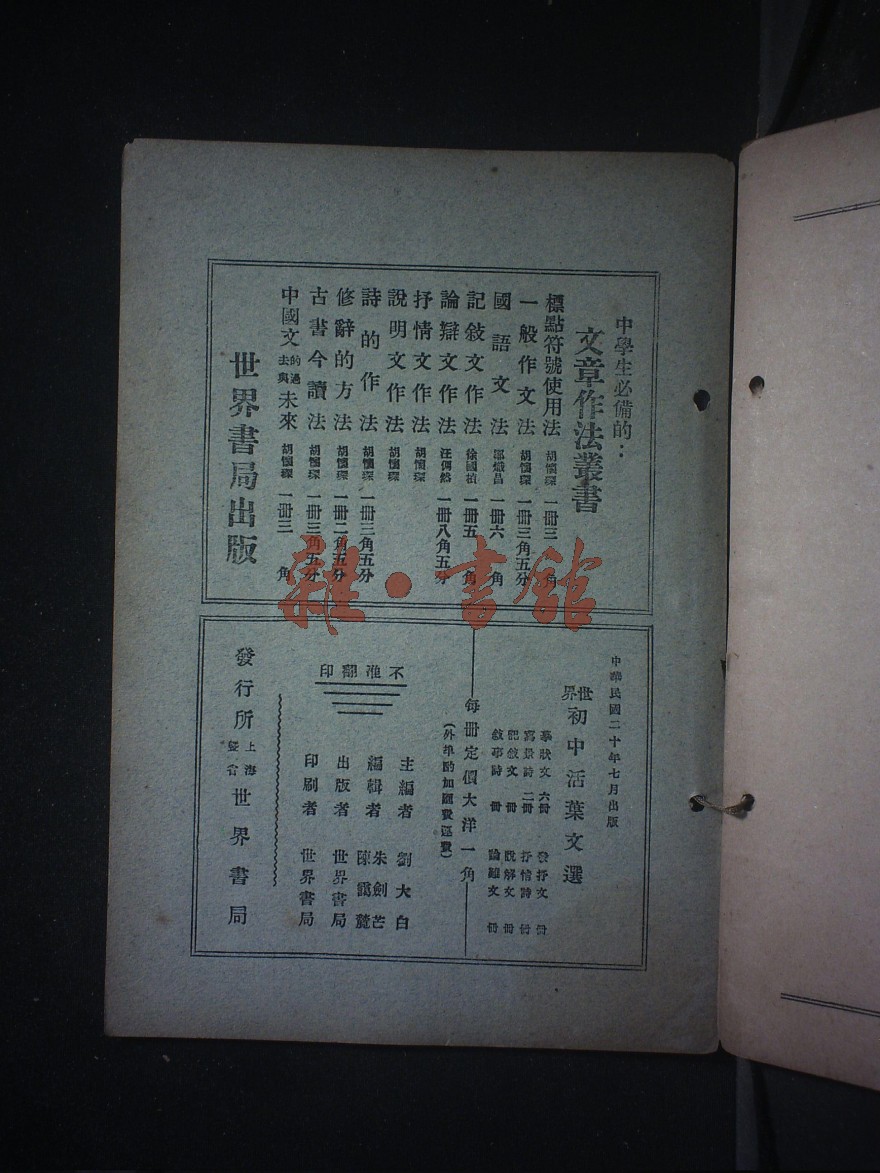 中學生必備的：
文章作法叢書
標點符號使用法 胡懷琛 一冊三角
一般作文法 胡懷琛 一冊三角五分
國語文法 鄒熾昌 一冊六角
記敍文作法 徐國楨 一冊五角
論辯文作法 汪倜然 一冊八角五分
抒情文作法 胡懷琛
說明文作法 胡懷琛
詩的作法 胡懷琛 一冊三角五分
修辭的方法 胡懷琛 一冊二角五分
古書今讀法 胡懷琛 一冊三角五分
中國文的過去與未來 胡懷琛 一冊三角
世界書局出版
雜·書館
中華民國二十年七月出版
世界初中活葉文選
學狀文 六冊 發抒文 冊
寫景詩 二冊 抒情詩 冊
記敘文 冊 說解文 冊
敘事詩 冊 論難文 冊
每冊定價大洋一角
(外埠酌加匯費運費)
不准翻印
主編者 劉大白
編輯者 朱劍芒 陳靄麓
出版者 世界書局
印刷者 世界書局
發行所 上海暨各省 世界書局